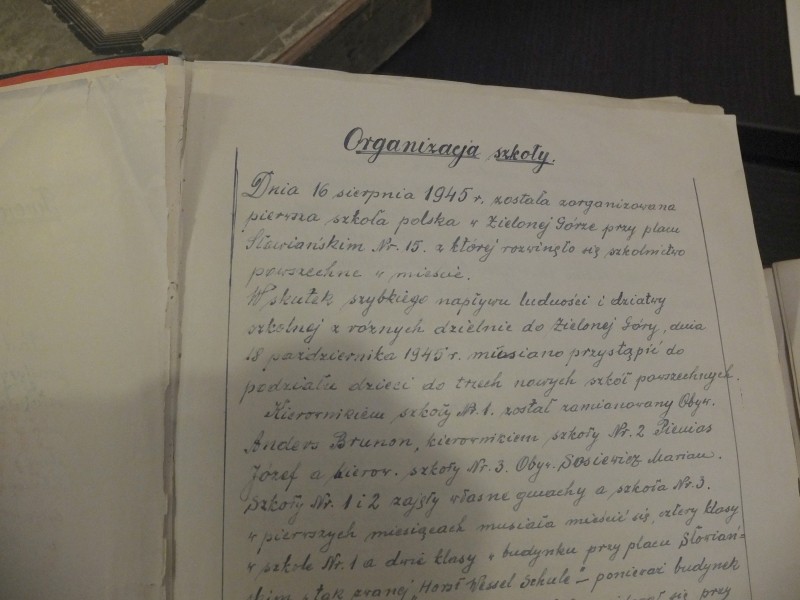 Organizacja szkoły.
Dnia 16 sierpnia 1945 r. została zorganizowana
pierwsza szkoła polska w Zielonej Górze przy placu
Słowiańskim Nr. 15. z której rozwinęło się szkolnictwo
powszechne w mieście.
Wskutek szybkiego napływu ludności i dziatwy
szkolnej z różnych dzielnic do Zielonej Góry, dnia
18 października 1945 r. musiano przystąpić do
podziału dzieci do trzech nowych szkół powszechnych.
Kierownikiem szkoły Nr. 1. został zamianowany Obyw.
Anders Brunon, kierownikiem szkoły Nr. 2 Pienias
Józef a kierow. szkoły Nr. 3. Obyw. Sosiewicz Marian.
Szkoły Nr. 1 i 2 zajęły własne gmachy a szkoła Nr. 3.
w pierwszych miesiącach musiała mieścić się, cztery klasy
w szkole Nr. 1 a dwie klasy w budynku przy placu Słowiań-
skim w tak zwanej „Horst Wessel Schule" – ponieważ budynek
się przy